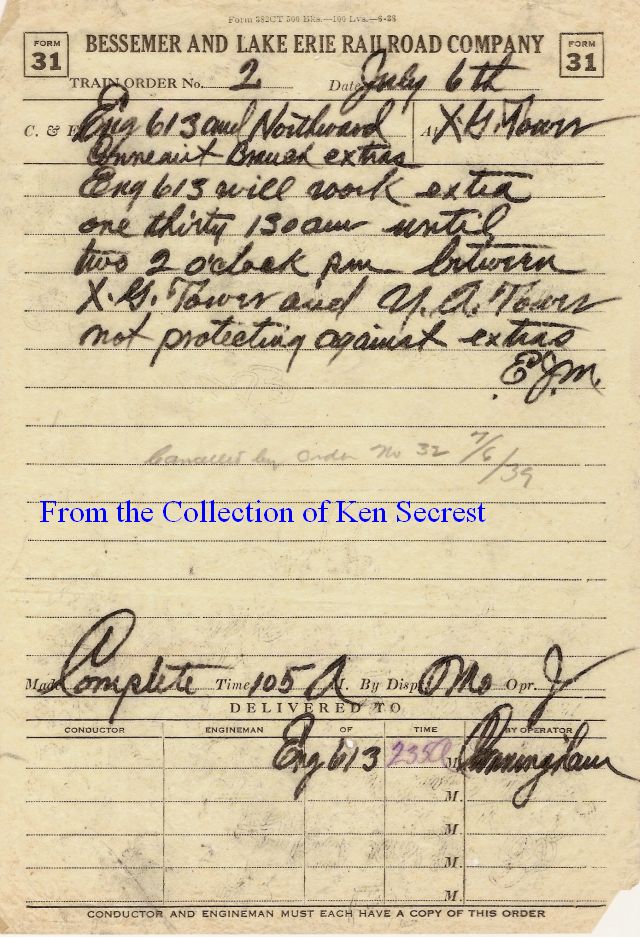 Form 382CT 500 Bks.—100 Lvs.—8-28
FORM 31
BESSEMER AND LAKE ERIE RAILROAD COMPANY
FORM 31
TRAIN ORDER No. 2 Date July 6th
C. & E. Eng 613 and Northward At X.G. Tower
Conneaut Branch extras
Eng 613 will work extra
one thirty 130 am until
two 2 o'clock pm between
X.G. Tower and Y.A. Tower
not protecting against extras
E.J.M.
Cancelled by order No 32 7/6/39
From the Collection of Ken Secrest
Made Complete Time 105 A M. By Disp. Opr. J
DELIVERED TO
CONDUCTOR ENGINEMAN OF TIME BY OPERATOR
Eng 613 235A M. Cunningham
M.
M.
M.
M.
CONDUCTOR AND ENGINEMAN MUST EACH HAVE A COPY OF THIS ORDER